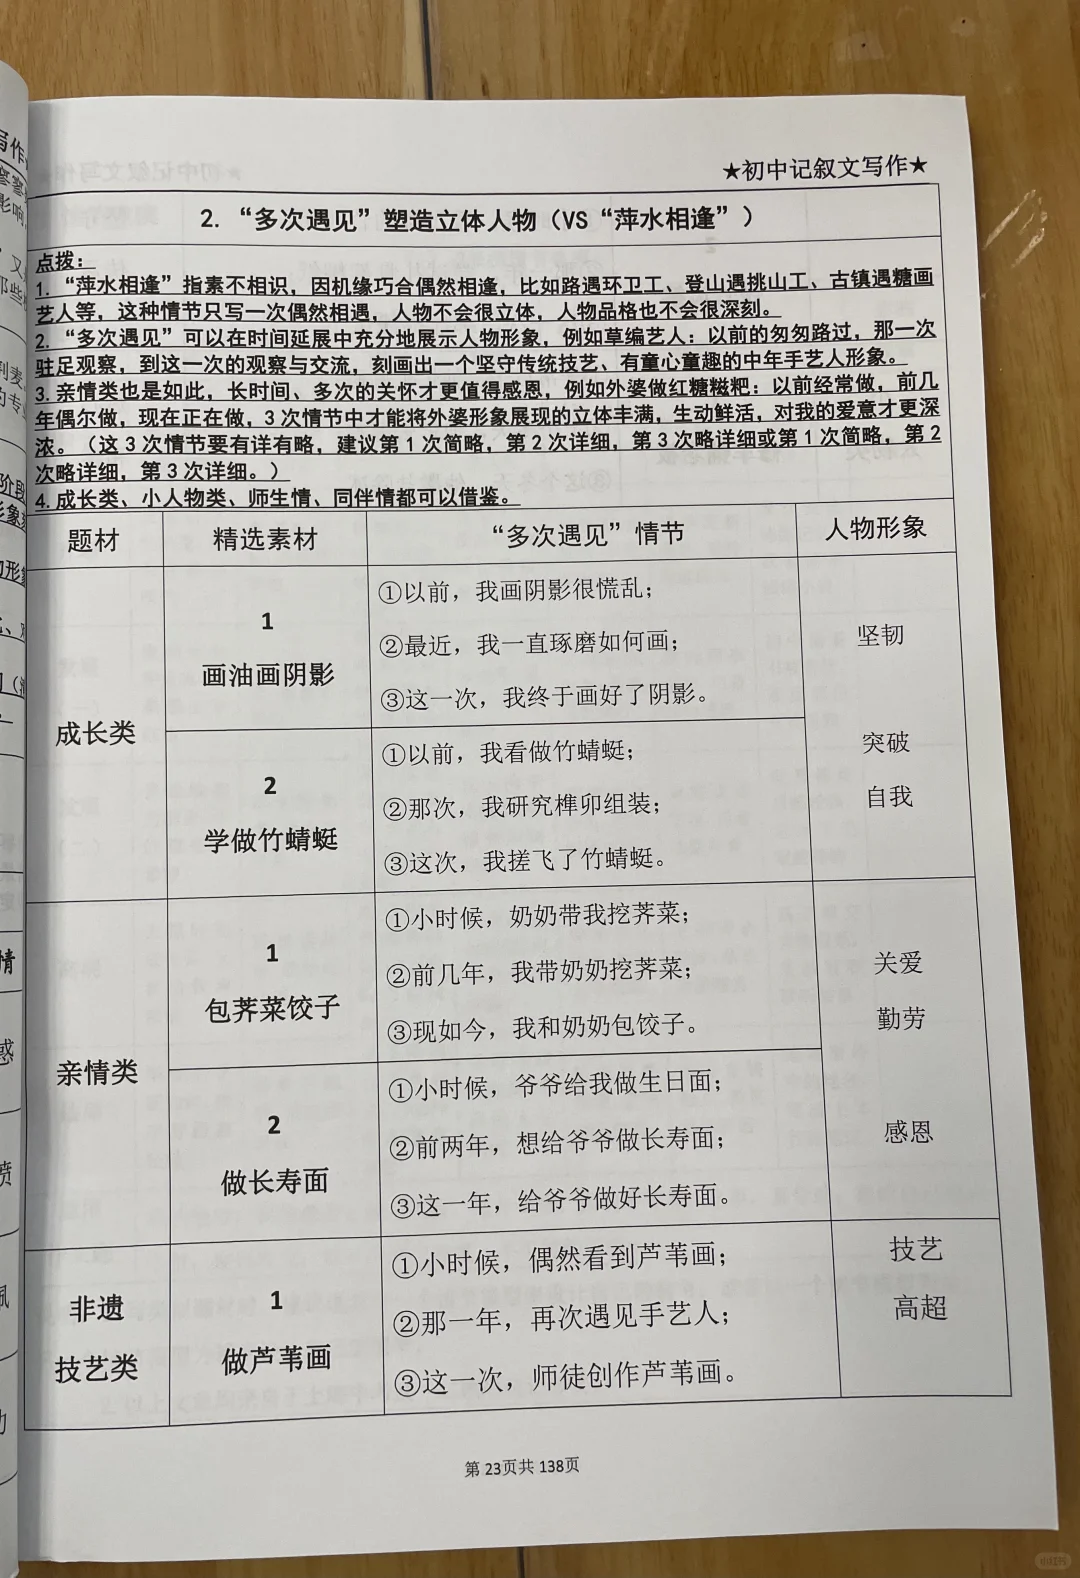 ★初中记叙文写作★
2. “多次遇见”塑造立体人物（VS“萍水相逢”）
点拨：
1. “萍水相逢”指素不相识，因机缘巧合偶然相逢，比如路遇环卫工、登山遇挑山工、古镇遇糖画
艺人等，这种情节只写一次偶然相遇，人物不会很立体，人物品格也不会很深刻。
2. “多次遇见”可以在时间延展中充分地展示人物形象，例如草编艺人：以前的匆匆路过，那一次
驻足观察，到这一次的观察与交流，刻画出一个坚守传统技艺、有童心童趣的中年手艺人形象。
3. 亲情类也是如此，长时间、多次的关怀才更值得感恩，例如外婆做红糖糍粑：以前经常做，前几
年偶尔做，现在正在做，3 次情节中才能将外婆形象展现的立体丰满，生动鲜活，对我的爱意才更深
浓。（这 3 次情节要有详有略，建议第 1 次简略，第 2 次详细，第 3 次略详细或第 1 次简略，第 2
次略详细，第 3 次详细。）
4. 成长类、小人物类、师生情、同伴情都可以借鉴。
题材 精选素材 “多次遇见”情节 人物形象
成长类
1
画油画阴影
①以前，我画阴影很慌乱；
②最近，我一直琢磨如何画；
③这一次，我终于画好了阴影。
坚韧
2
学做竹蜻蜓
①以前，我看做竹蜻蜓；
②那次，我研究榫卯组装；
③这次，我搓飞了竹蜻蜓。
突破
自我
亲情类
1
包荠菜饺子
①小时候，奶奶带我挖荠菜；
②前几年，我带奶奶挖荠菜；
③现如今，我和奶奶包饺子。
关爱
勤劳
2
做长寿面
①小时候，爷爷给我做生日面；
②前两年，想给爷爷做长寿面；
③这一年，给爷爷做好长寿面。
感恩
非遗
技艺类
1
做芦苇画
①小时候，偶然看到芦苇画；
②那一年，再次遇见手艺人；
③这一次，师徒创作芦苇画。
技艺
高超
第 23页共 138页